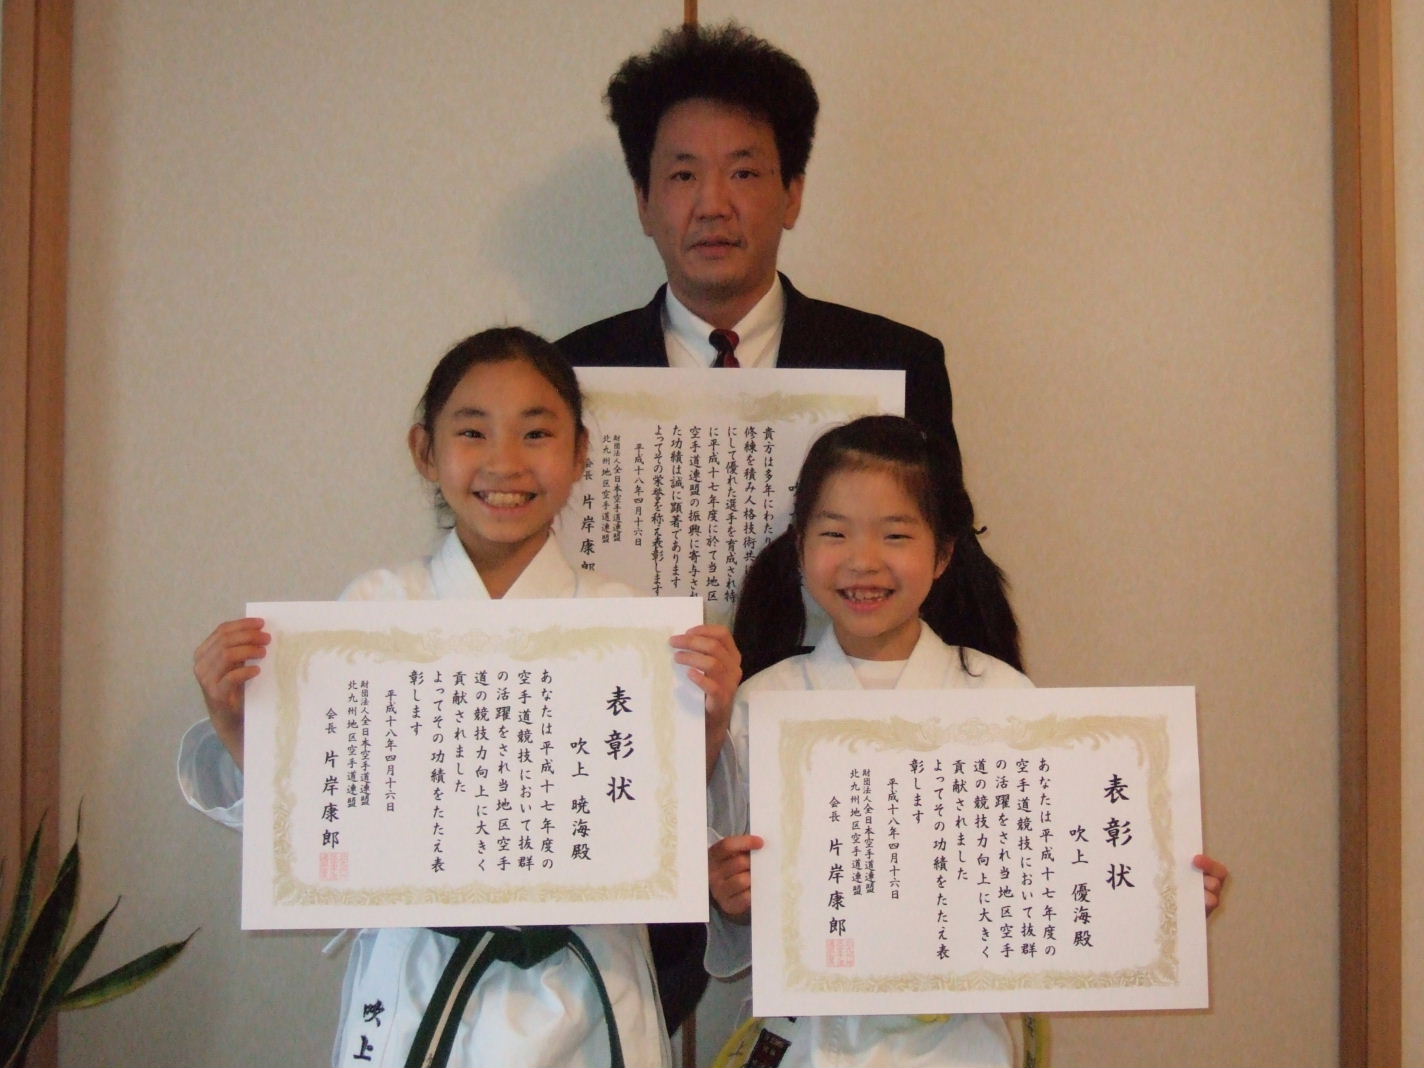 貴方は多年にわたり
修練を積み人格技術共に
にして優れた選手を育成され特
に平成十七年度に於て当地区
空手道連盟の振興に寄与され
た功績は誠に顕著であります
よってその栄誉を称え表彰します
平成十八年四月十六日
財団法人全日本空手道連盟
北九州地区空手道連盟
会長 片岸康郎
表彰状
吹上 暁海殿
あなたは平成十七年度の
空手道競技において抜群
の活躍をされ当地区空手
道の競技力向上に大きく
貢献されました
よってその功績をたたえ表
彰します
平成十八年四月十六日
財団法人全日本空手道連盟
北九州地区空手道連盟
会長 片岸康郎
表彰状
吹上 優海殿
あなたは平成十七年度の
空手道競技において抜群
の活躍をされ当地区空手
道の競技力向上に大きく
貢献されました
よってその功績をたたえ表
彰します
平成十八年四月十六日
財団法人全日本空手道連盟
北九州地区空手道連盟
会長 片岸康郎
吹上